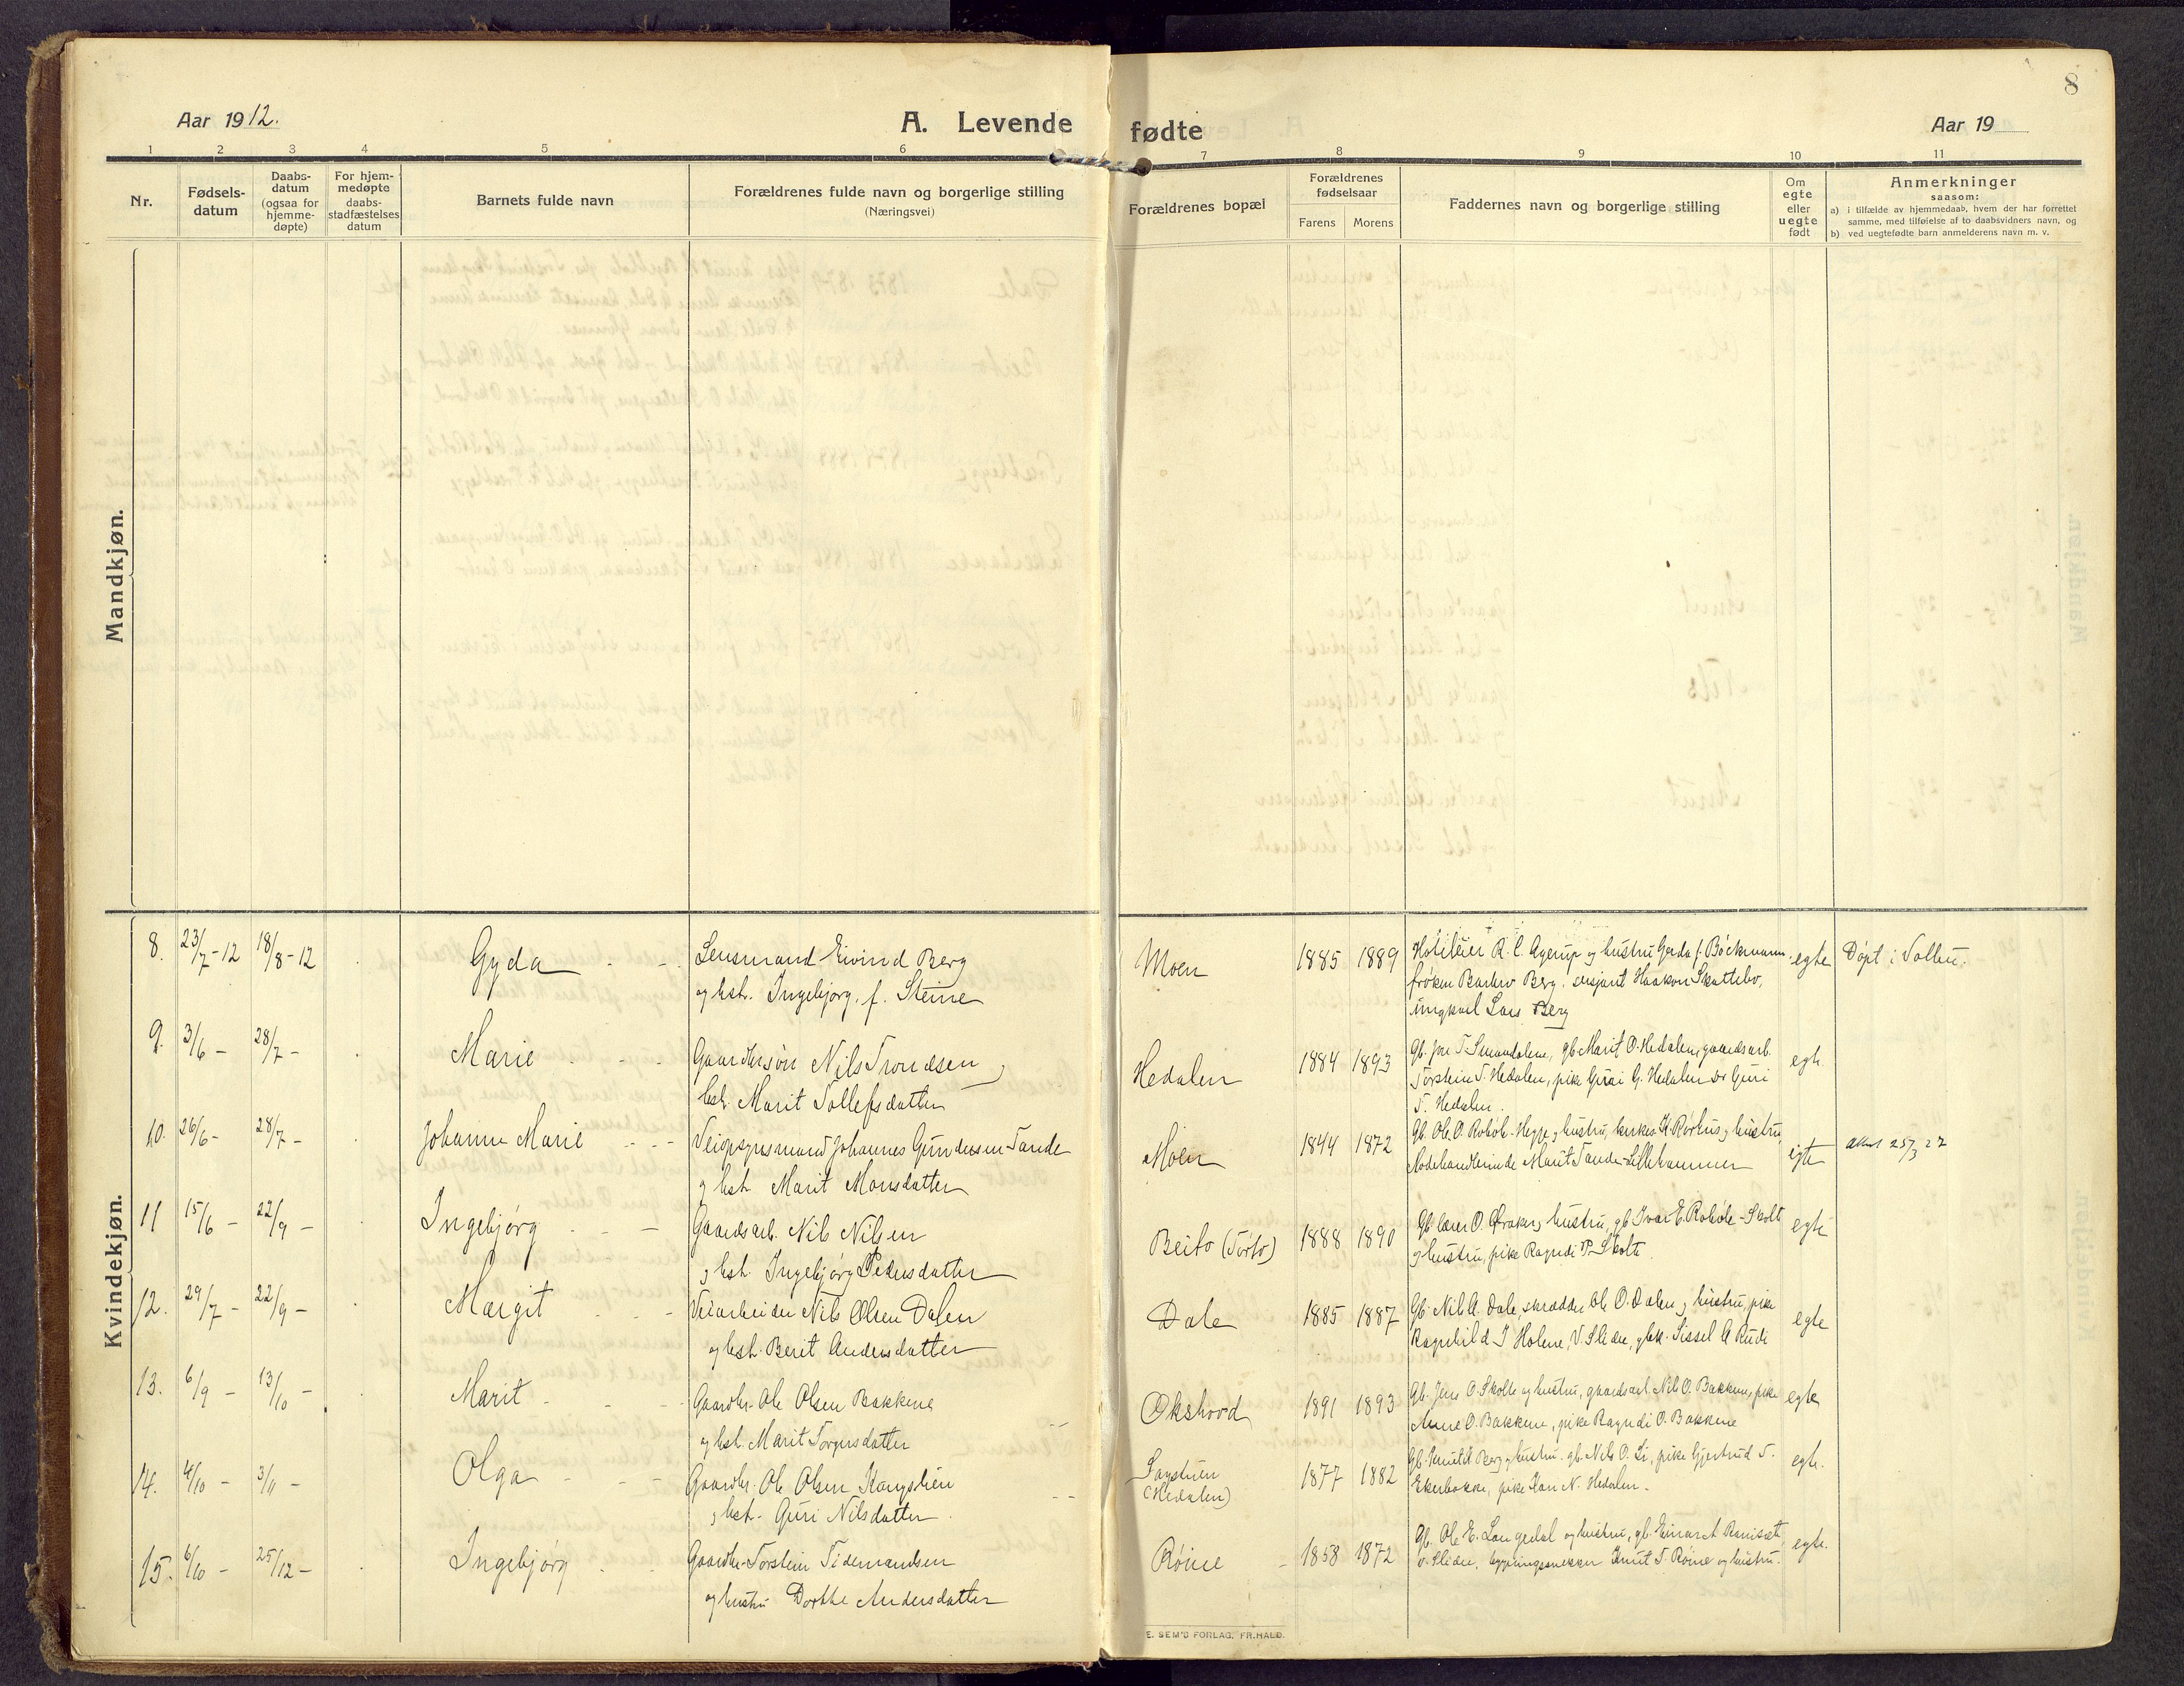 8
Aar 1912.
A. Levende fødte
Aar 19
1 2 3 4 5 6 7 8 9 10 11
Nr.
Fødsels-
datum
Daabs-
datum
(ogsaa for
hjemme-
døpte)
For hjem-
medøpte
daabs-
stadfæstelses
datum
Barnets fulde navn
Forældrenes fulde navn og borgerlige stilling
(Næringsvei)
Forældrenes bopæl
Forældrenes
fødselsaar
Farens Morens
Faddernes navn og borgerlige stilling
Om
egte
eller
uegte
født
Anmerkninger
saasom:
a) i tilfælde av hjemmedaab, hvem der har forrettet
samme, med tilføielse af to daabsvidners navn, og
b) ved uegtefødte barn anmelderens navn m. v.
Mandkjøn.
Kvindekjøn.
8. 23/7-12 18/8-12 Gyda
Lensmand Eivind Berg
og hst. Ingebjørg, f. Steine
Moen 1885 1889
Hoteleier R. C. Agerup og hustru Gerda f. Böckmann
frøken Barbro Berg. sersjant Haakon Skattebo,
ungkarl Lars Berg
egte Døpt i
9. 3/6 - 28/7 - Marie
Gaardbrsøn Nils Trondsen
hst. Marit Tollefsdatter
Hedalen 1884 1893
Gb. Jon T. gb. Marit O. Hedalen, gaardsarb.
Torstein T. Hedalen, pike Guri G. Hedalen Guri
T. Hedalen.
egte.
10. 26/6- 28/7 - Johanne Marie
Veiopsynsmand Johannes Gundersen Tande
og hst. Marit Monsdatter
Moen 1844 1872
Gb. Ole O Robøle-Hegge og hustru, og hustru,
Modehandlerinde Marit Tande-Lillehammer
egte 25/3 27
11 15/6 - 22/9 - Ingebjørg
Gaardsarb. Nils Nilsen
og hst. Ingebjørg Pedersdatter
Beito (Tørto) 1888 1890
Gb. lærer O. og hustru, gb Ivar E. Robøle-Skolt
og hustru, pike Ragndi P. Skolte.
egte
12. 29/7 - 22/9 - Margit
Veiarbeider Nils Olsen Dalen
og hst. Berit Andersdatter
Dale 1885 1887
Gb. Nils A. Dale, skrædder Ole O. Dalen og hustru, pike
Ragnhild J Holene, V. Slidre, Sissel A Rudi
egte
13. 6/9 - 13/10 - Marit
Gaardbr. Ole Olsen Bakkene
og hst. Marit Torgersdatter
Økshovd 1891 1893
Gb. Jens O. Skolte og hustru, gaardsarb. Nils O. Bakkene, pike
Anne O. Bakkene, pike Ragndi O. Bakkene
egte
14. 4/10 - 3/11 - Olga
Gaardbr. Ole Olsen
og hst. Guri Nilsdatter
(Hedalen) 1877 1882
Gb. Knut Berg og hustru. gb. Nils O. Li, pike Gjertrud T.
Ekerbakke, pike Kari N. Hedalen.
egte.
15. 6/10 - 25/12 - Ingebjørg
Gaardbr. Torstein Tidemandsen
og hustru Dorthe Andersdatter
Røine 1858 1872
Gb. Ole E. Langedal og hustru, gb. Einar
v. Slidre, Knut T. Røine og hustru.
egte.
E. SEM'S FORLAG, FR.HALD.